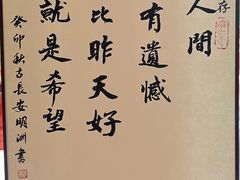 存
人間
有遺憾
比昨天好
就是希望
癸卯秋古長安明洲書